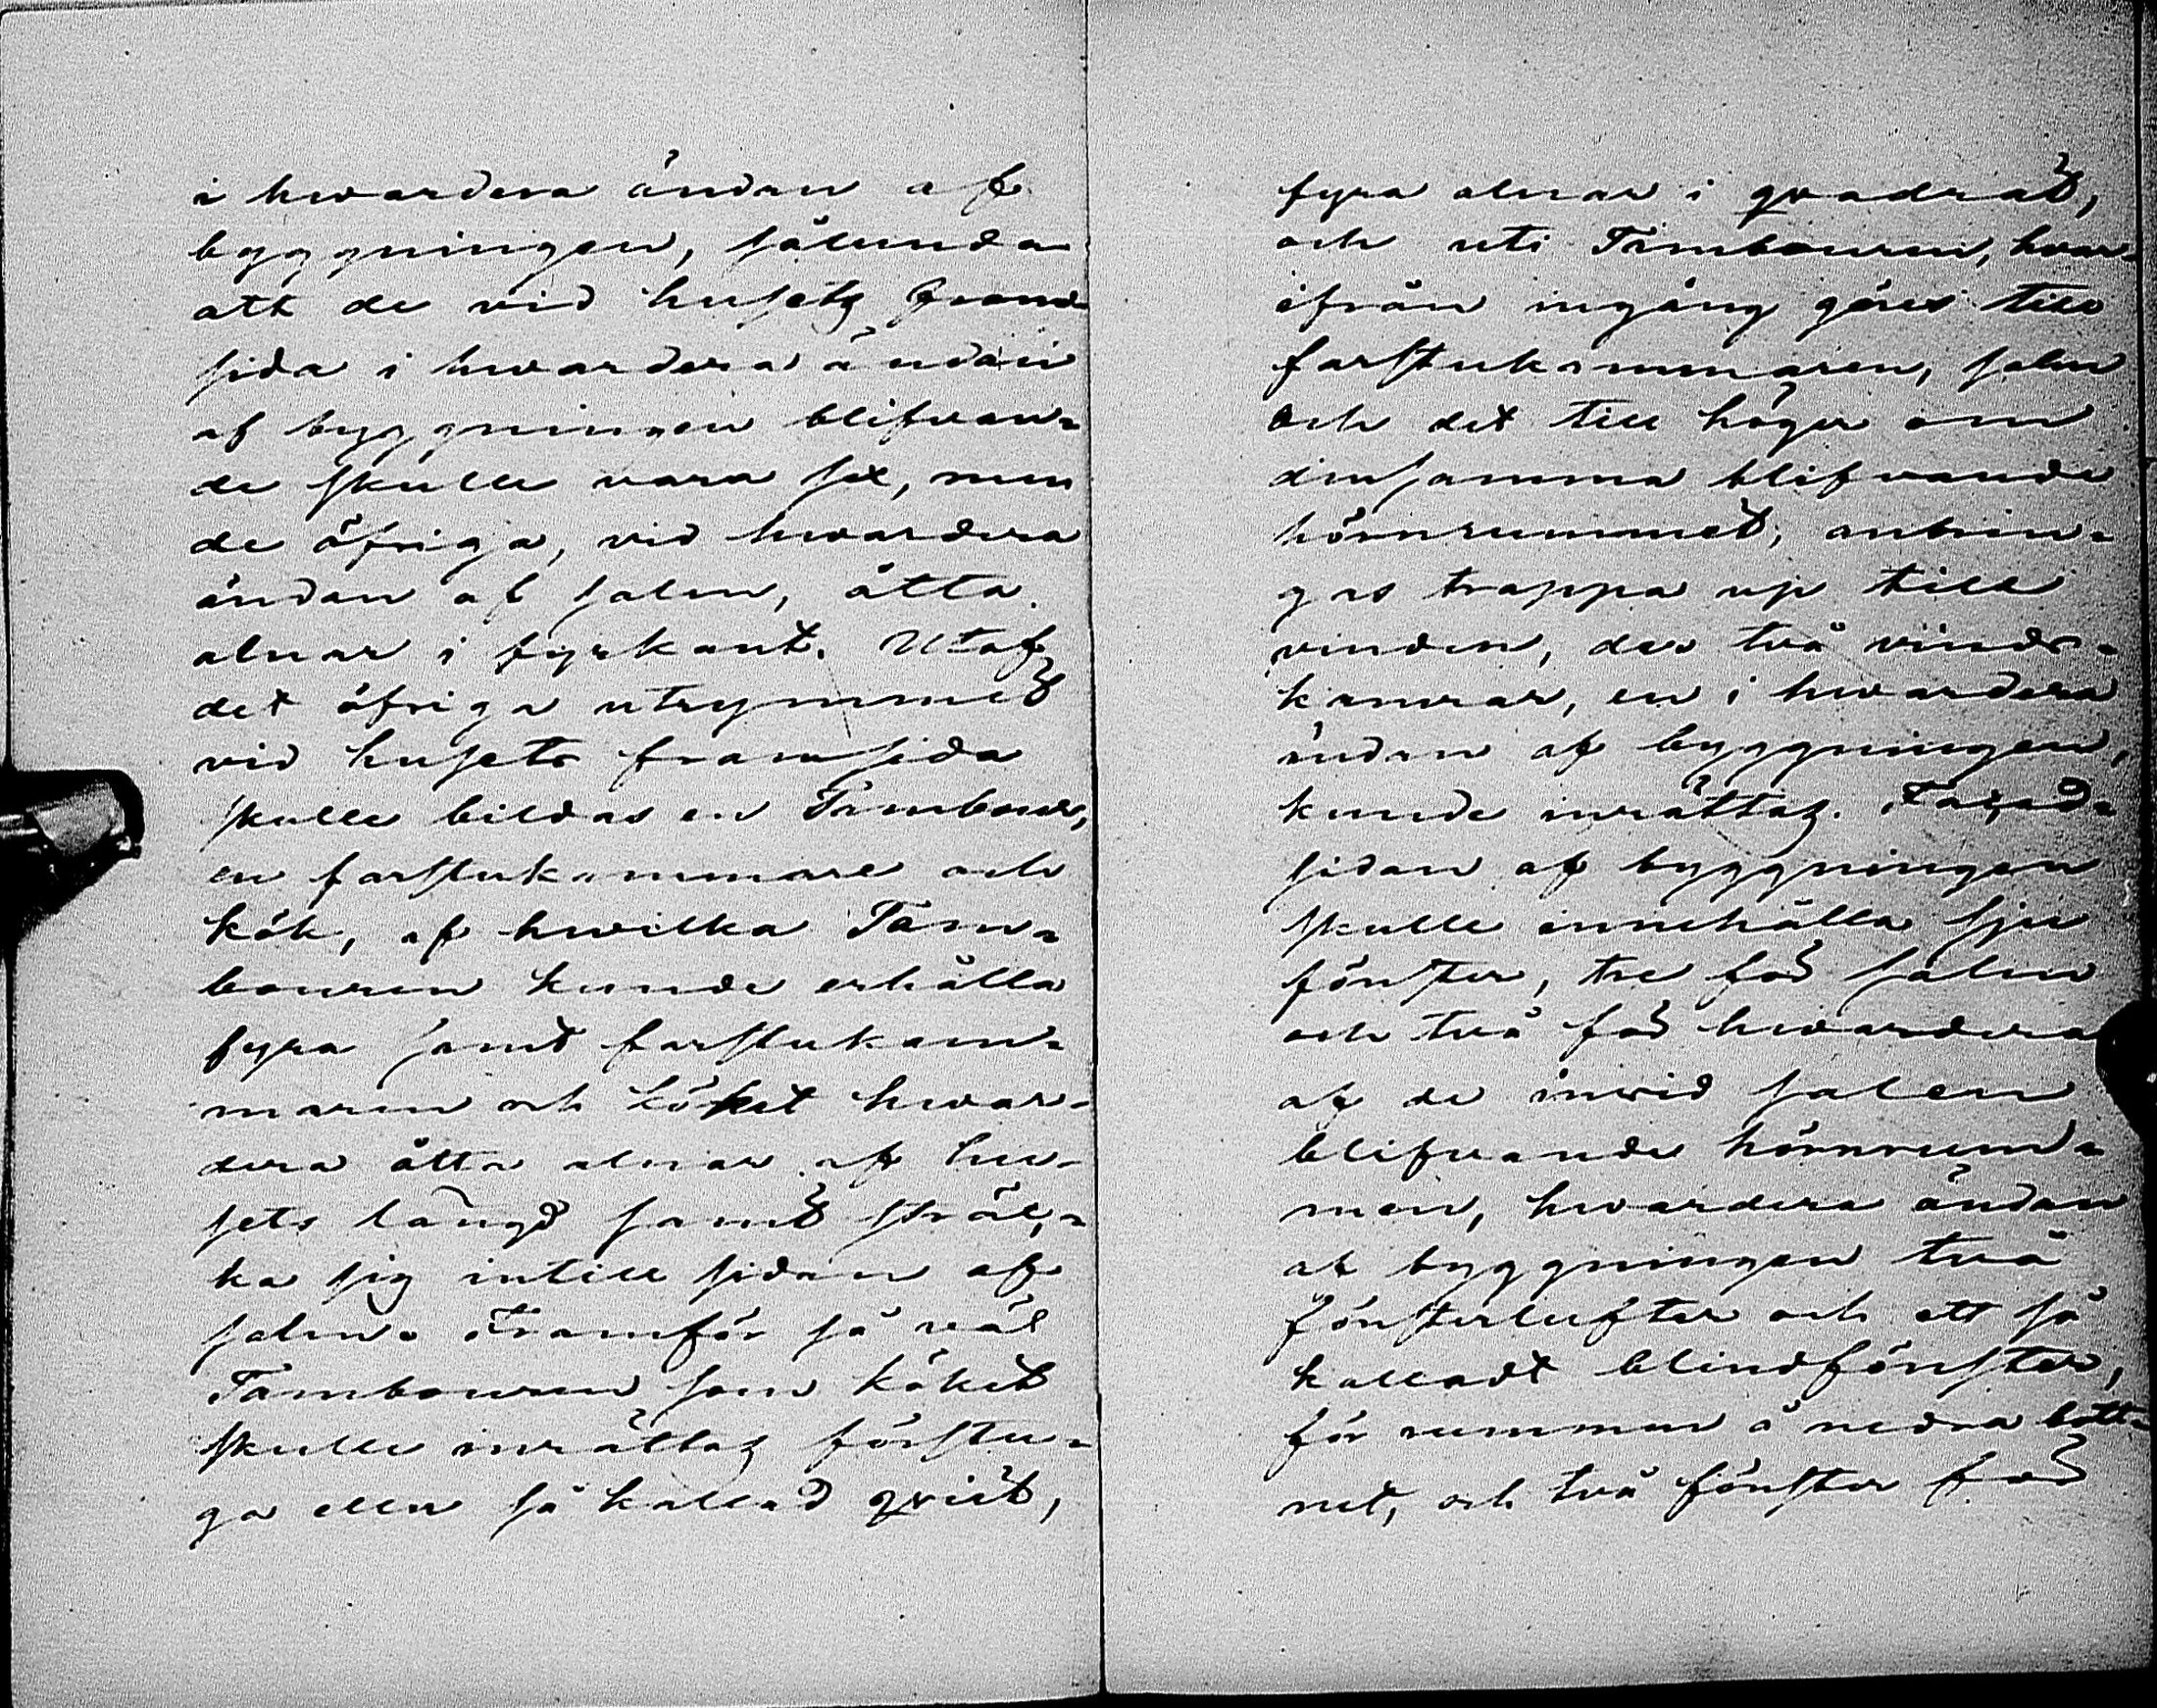 i hwardera ändan af
byggningen, sålunda
att de vid husets fram
sida i hwardera ändan
af byggningen blifvan-
de skulle vara sex, men
de öfriga, vid hwardera
ändan af salen, åtta
alnar i fyrkant. Utaf
det öfriga utrymmet
vid husets framsida
skulle bildas en Tambour,
en farstukammare och
kök, af hwilka Tam-
bouren kunde erhålla
fyra samt farstukam-
maren och köket hwar-
dera åtta alnar af hu-
sets längd samt sträc-
ka sig intill sidan af
salen. Framför så väl
Tambouren som köket
skulle inrättas förstu-
ga eller så kallad qvist,
fyra alnar i qvadrat,
och uti Tambouren, hvar-
ifrån ingång göres till
farstukammaren, salen
och det till höger om
densamma blifvande
hörnrummet, anbrin-
gas trappa up till
vinden, der två vinds-
kamrar, en i hwardera
ändan af byggningen,
kunde inrättas. Façad-
sidan af byggningen
skulle innehålla sju
fönster, tre för salen
och två för hwardera
af de invid salen
blifvande hörnrum-
men, hwardera ändan
af byggningen två
fönsterlufter och ett så
kalladt blindfönster,
för rummen å nedra bott-
net, och två fönster för